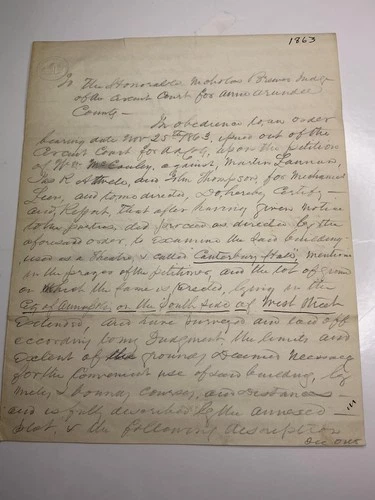 1863
To The Honorable Nicholas Brewer Judge
of the Circuit Court for Anne Arundel
County —
In obedience to an order
bearing date Nov 25th 1863, issued out of the
Circuit Court for A A Co, upon the petition
of Wm McCauley, against, Martin
Jas R and John Thompson, for Mechanics
Lien, and to me directed, Do, hereby, Certify —
and, Report, that after having given notice
to the parties, did proceed as directed by the
aforesaid order, to Examine the said building
used as a Theatre, & called Canterbury Hall, mentioned
in the prayer of the petitioner, and the lot of ground
on Which the same is Erected, lying in the
City of Annapolis, on the South side of West Street
Extended, and have surveyed and laid off
according to my Judgment, the limits and
Extent of the ground, deemed Necessary
for the Convenient use of said building, by
metes, & bounds, courses, and distances —
and is fully described by the annexed
plat, & the following description
See over